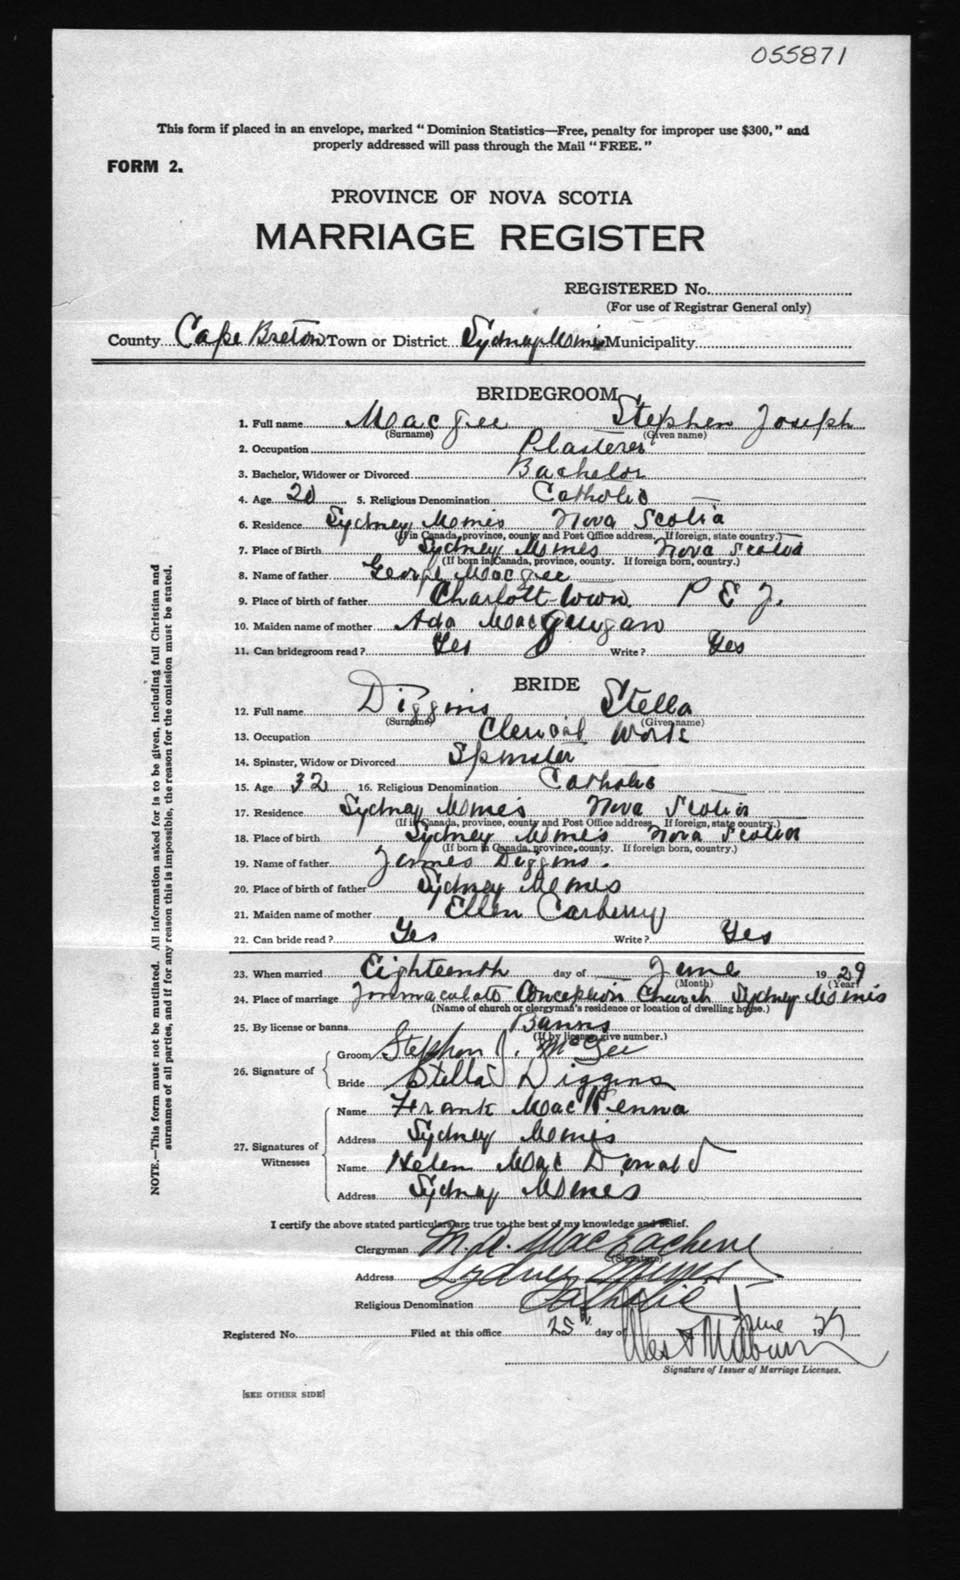 055871
This form if placed in an envelope, marked "Dominion Statistics—Free, penalty for improper use $300," and
properly addressed will pass through the Mail "FREE."
FORM 2.
PROVINCE OF NOVA SCOTIA
MARRIAGE REGISTER
REGISTERED No.
(For use of Registrar General only)
County Cape Breton Town or District Sydney Mines Municipality
BRIDEGROOM
1. Full name MacGee Stephen Joseph
(Surname) (Given name)
2. Occupation Plasterer
3. Bachelor, Widower or Divorced Bachelor
4. Age 20 5. Religious Denomination Catholic
6. Residence Sydney Mines Nova Scotia
(If in Canada, province, county and Post Office address. If foreign, state country.)
7. Place of Birth Sydney Mines Nova Scotia
(If born in Canada, province, county. If foreign born, country.)
8. Name of father George MacGee
9. Place of birth of father Charlottetown P E I.
10. Maiden name of mother Ada MacGuigan
11. Can bridegroom read? Yes Write? Yes
BRIDE
12. Full name Diggins Stella
(Surname) (Given name)
13. Occupation Clerical Work
14. Spinster, Widow or Divorced Spinster
15. Age 32 16. Religious Denomination Catholic
17. Residence Sydney Mines Nova Scotia
(If in Canada, province, county and Post Office address. If foreign, state country.)
18. Place of birth Sydney Mines Nova Scotia
(If born in Canada, province, county. If foreign born, country.)
19. Name of father James Diggins.
20. Place of birth of father Sydney Mines
21. Maiden name of mother Ellen Carberry
22. Can bride read? Yes Write? Yes
23. When married Eighteenth day of June 1929
(Month) (Year)
24. Place of marriage Immaculate Conception Church Sydney Mines
(Name of church or clergyman's residence or location of dwelling house.)
25. By license or banns Banns
(If by license give number.)
26. Signature of
Groom Stephen J. McGee
Bride Stella Diggins
27. Signatures of Witnesses
Name Frank MacKenna
Address Sydney Mines
Name Helen MacDonald
Address Sydney Mines
I certify the above stated particulars are true to the best of my knowledge and belief.
Clergyman M. A. MacEachern
(Signature)
Address Sydney Mines
Religious Denomination Catholic
Registered No. Filed at this office 25th day of June 19
Signature of Issuer of Marriage Licenses.
[SEE OTHER SIDE]
NOTE.—This form must not be mutilated. All information asked for is to be given, including full Christian and
surnames of all parties, and if for any reason this is impossible, the reason for the omission must be stated.